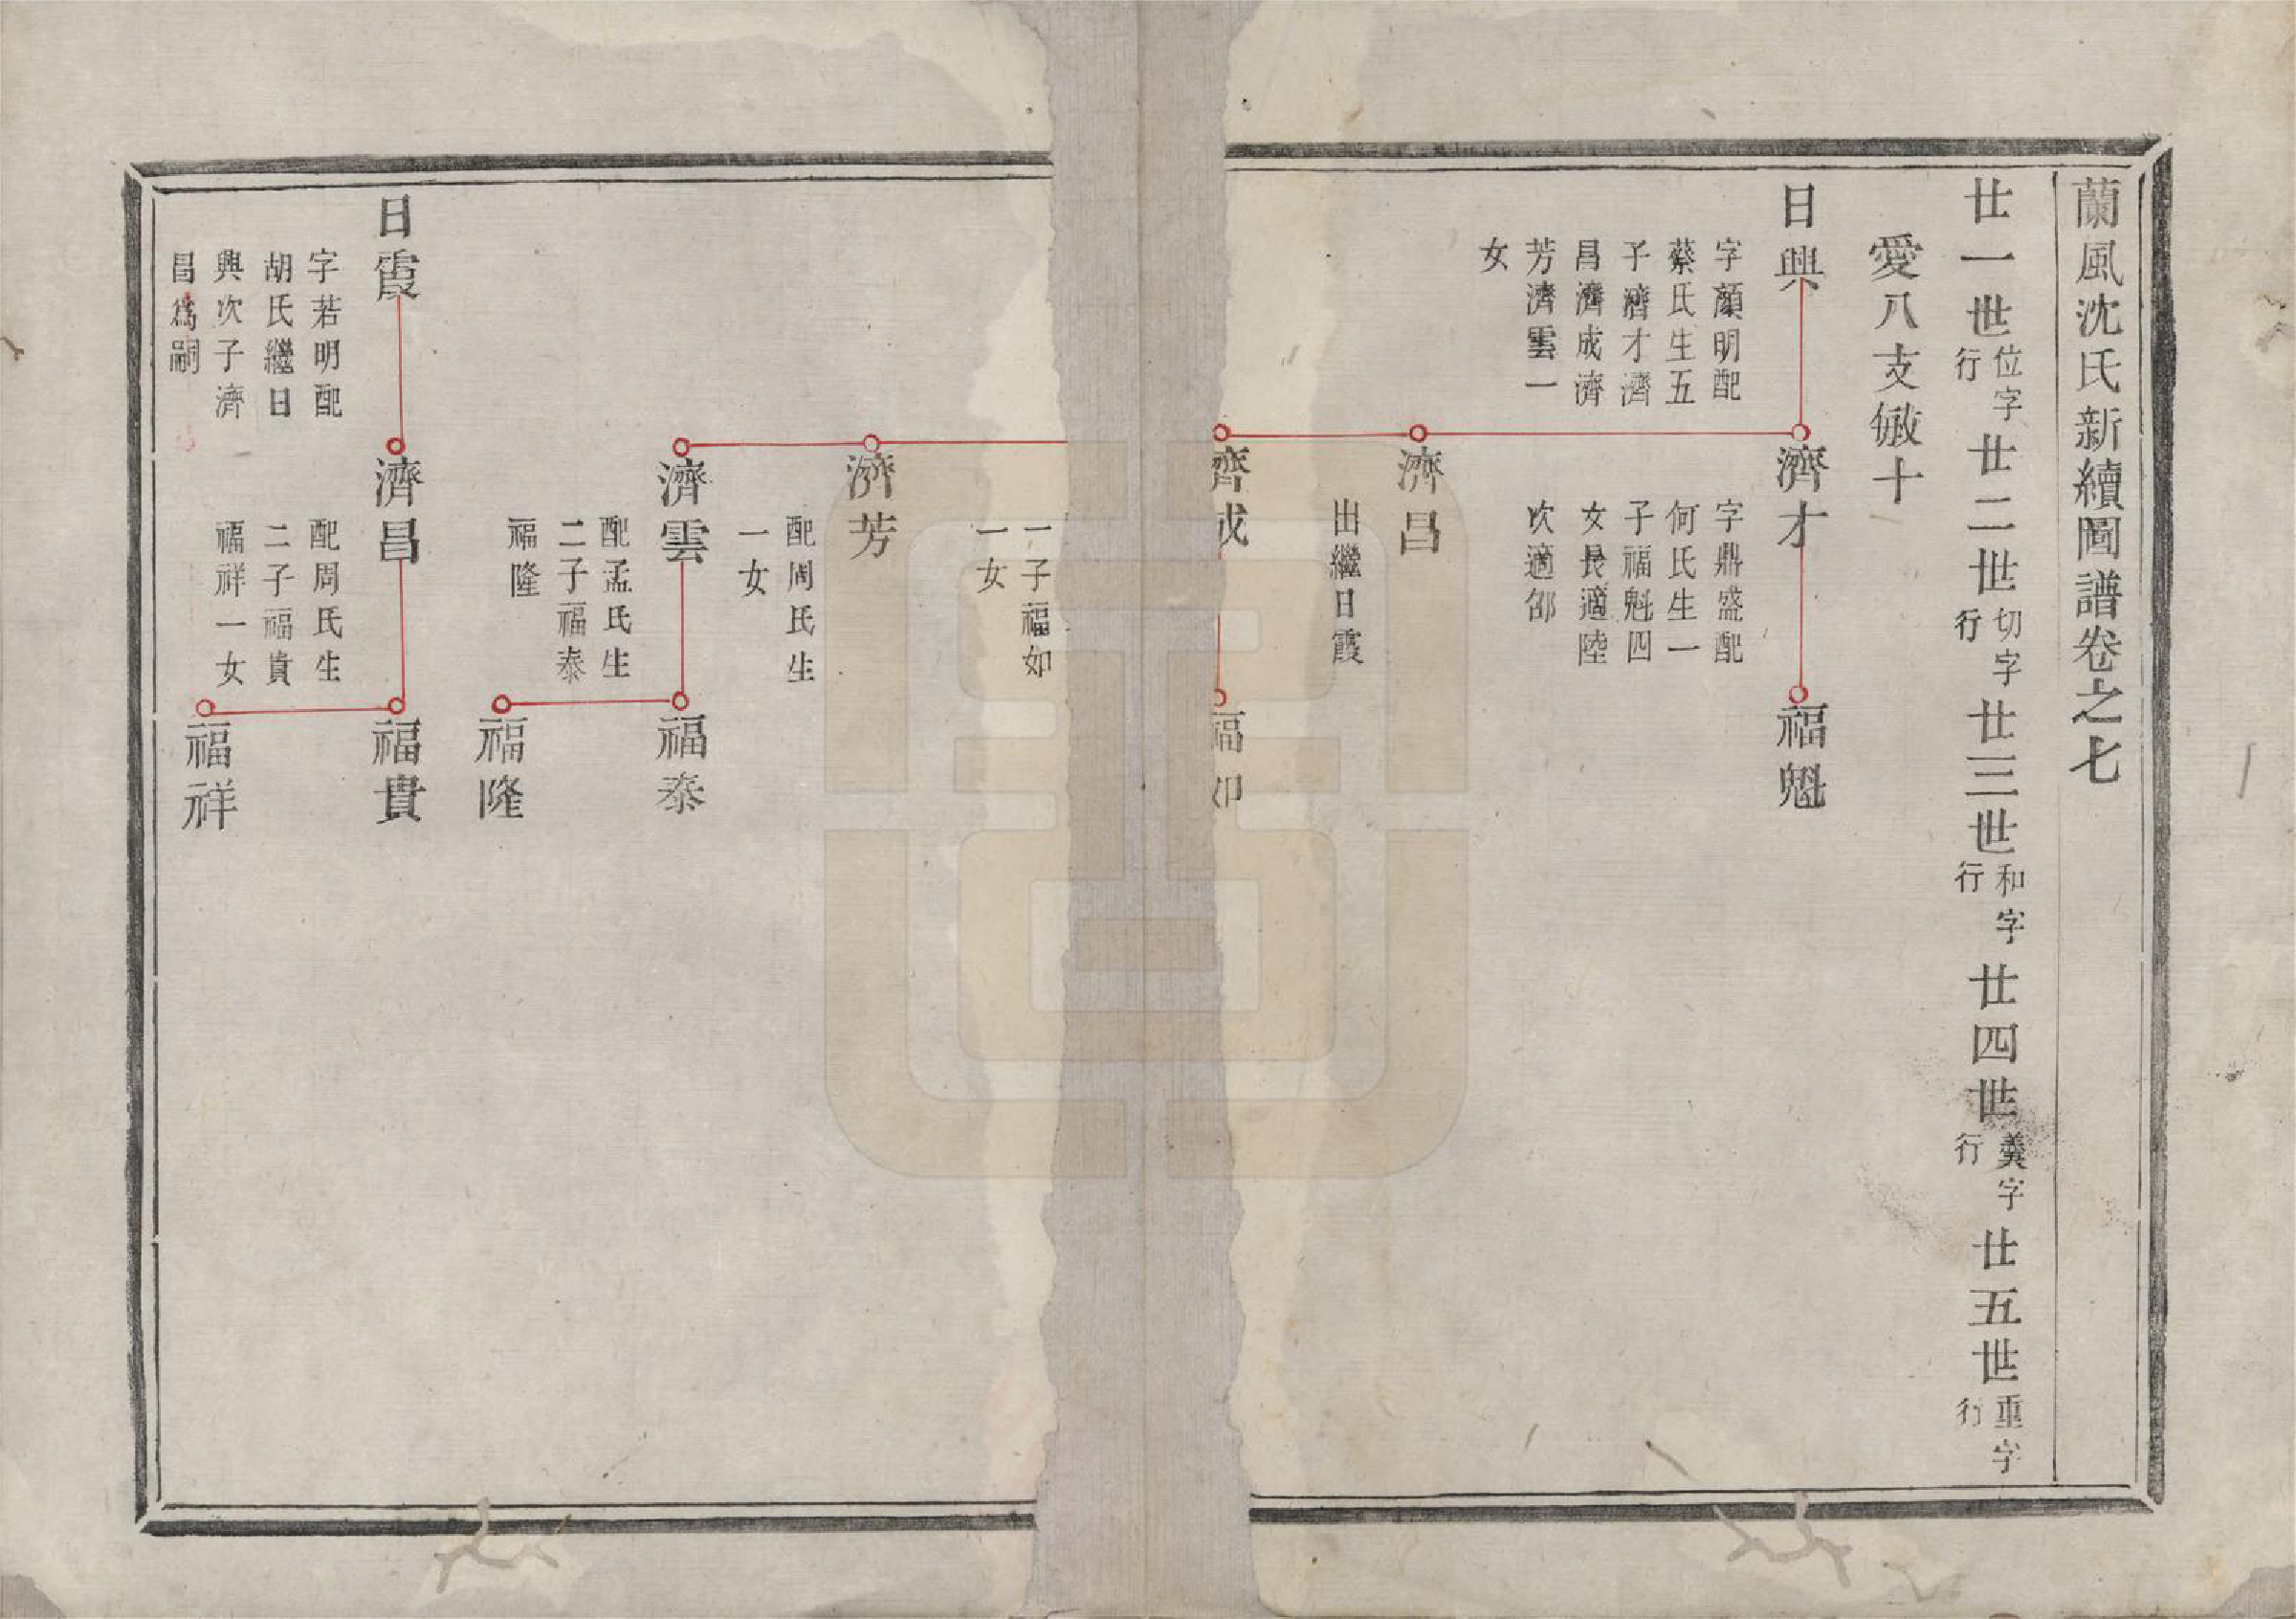 蘭風沈氏新續圖譜卷之七
廿一世位字行廿二世切字行廿三世和字行廿四世義字行廿五世重字行
愛八支儆十
日興
字顏明配
蔡氏生五
子濟才濟
昌濟成濟
芳濟雲一
女
濟才
字鼎盛配
何氏生一
子福魁四
女長適陸
次適邵
福魁
濟昌
出繼日霞
濟成
一子福如
一女
福如
濟芳
配周氏生
一女
濟雲
配孟氏生
二子福泰
福隆
福泰
福隆
日霞
字若明配
胡氏繼日
興次子濟
昌爲嗣
濟昌
配周氏生
二子福貴
福祥一女
福貴
福祥